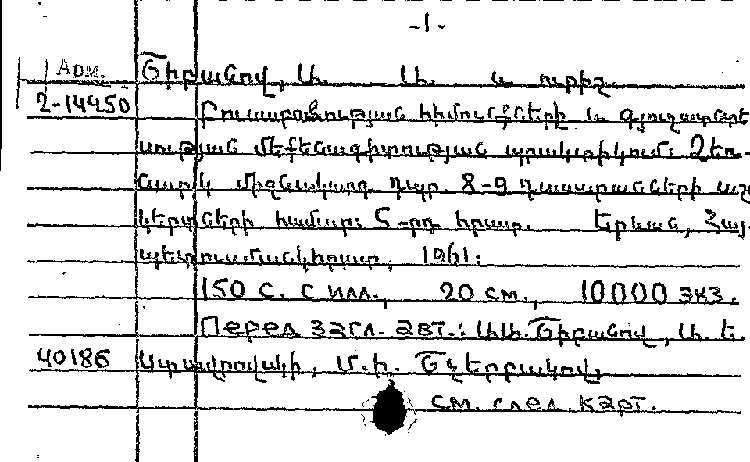 -1-
Арм. Շիբանով, Ա. Ա. և ուրիշ.
2-14450 Բուսաբուծության հիմունքների և գյուղատնտե-
սության մեքենագիտության պրակտիկում: Ձեռ-
նարկ միջնակարգ դպր. 8-9 դասարանների աշա-
կերտների համար: 5-րդ հրատ. Երևան, Հայ-
պետուսմանկհրատ, 1961:
150 с. с илл., 20 см., 10000 экз.
Перед загл. авт.: Ա.Ա. Շիբանով, Ա. Ե.
40186 Ստավրովսկի, Մ. Ի. Շչերբակով,
см. след. карт.